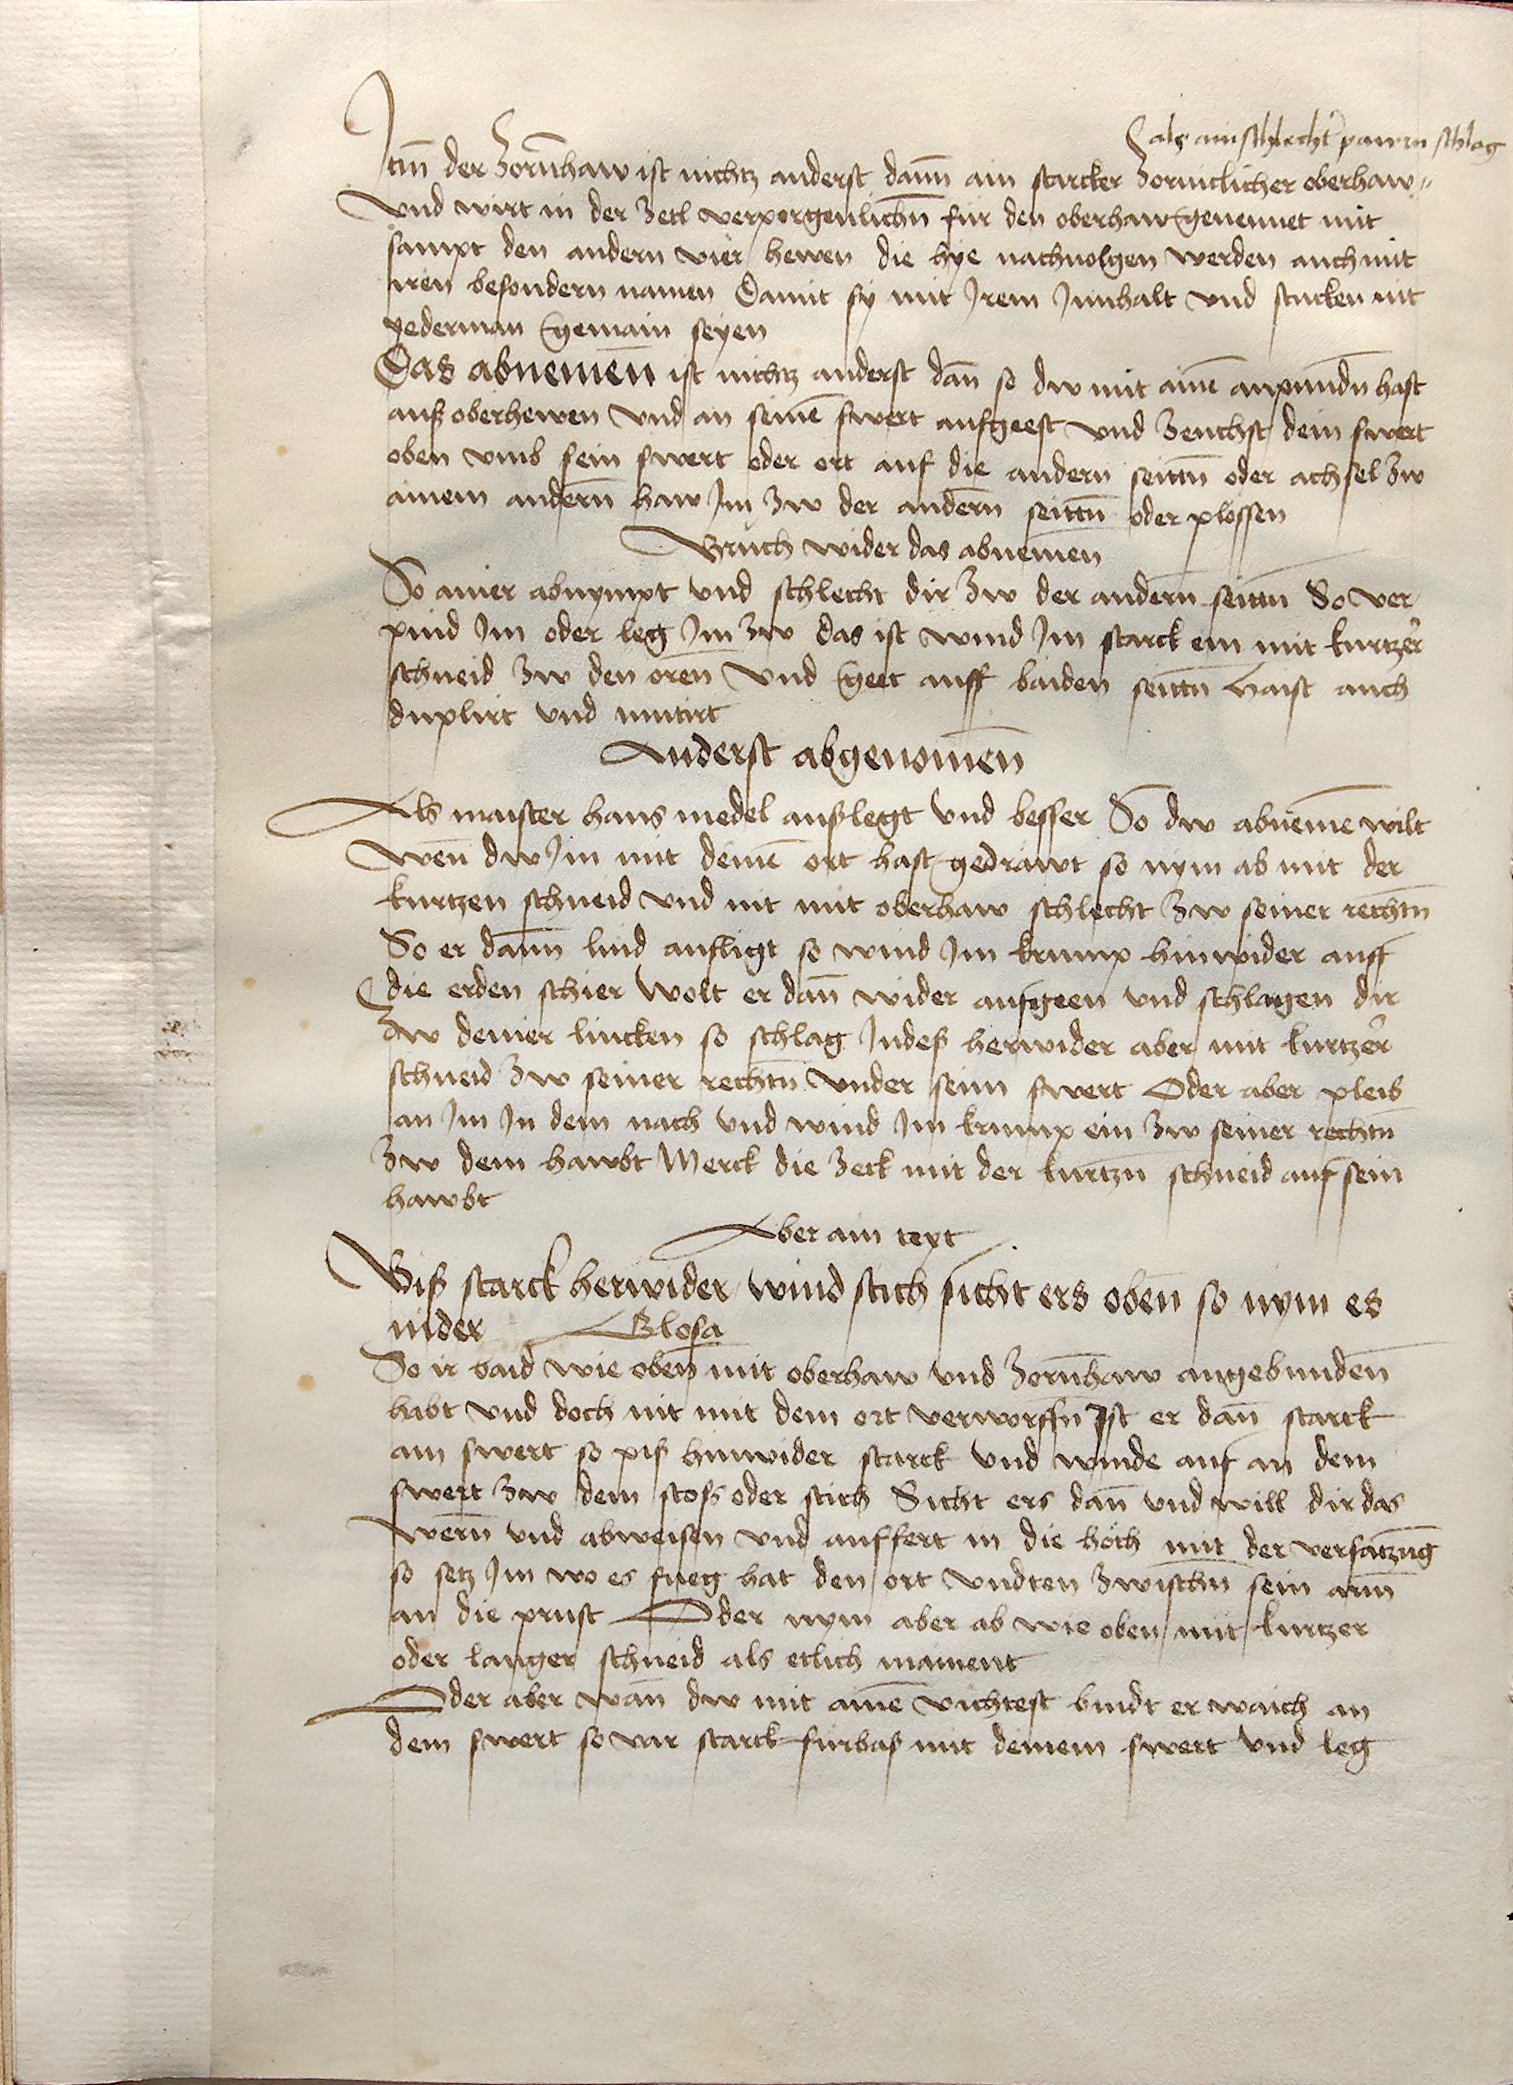 als ain schlechtr pawrn schlag
Itm̄ der Zorn̄haw ist nichtz anderst dann̄ ain starcker Zorniclicher oberhaw
vnd wirt in der Zetl verporgenlichn̄ für den oberhaw genennet mit
sampt den andern vier hewen die hye nachuolgen werden auch mit
iren besondern namen Damit sy mit Irem Innhalt vnd stucken nit
yederman gemain seyen
Das abnemen̄ ist nichtz anderst dan̄ so dw mit ainē anpundn̄ hast
auß oberhewen vnd an seinē swert aufgeest vnd Zeuchst dein swert
oben vmb sein swert oder ort auf die andern seittn̄ oder achsel Zw
ainem andern̄ haw Im Zw der andern̄ seittn̄ oder plossen
Bruch wider das abnemen̄
So ainer abnympt vnd schlecht dir Zw der andern̄ seittn̄ So ver
pind Im oder leg Im Zw das ist wind Im starck ein mit kurtzer
schneid Zw den oren vnd geet auff baiden seittn̄ Haist auch
duplirt vnd mutirt
Anderst abgenomen̄
Als maister hans medel außlegt vnd besser So dw abnemē wilt
wen̄ dw Im mit deinē ort hast gedrawt so nym ab mit der
kurtzen schneid vnd nit mit oberhaw schlecht Zw seiner rechtn̄
So er dann̄ lind aufligt so wind Im krump hinwider auff
die erden schier Wolt er dan̄ wider aufgeen vnd schlagen dir
Zw deiner lincken so schlag Indeß herwider aber mit kurtzer
schneid Zw seiner rechtn̄ vnder seim swert Oder aber pleib
an Im In dem nach vnd wind Im krump ein Zw seiner rechtn̄
Zw dem hawbt Merck die Zeck mit der kurtzn̄ schneid auf sein
hawbt
Aber ain text
Biß starck herwider wind stich sicht ers oben so nym es
nider Glosa
So ir baid wie oben mit oberhaw vnd Zorn̄haw angebunden̄
habt vnd doch nit mit dem ort verworffn̄ Ist er dan̄ starck
am swert so piß hinwider starck vnd winde auf an dem
swert Zw dem stoß oder stich Sicht ers dan̄ vnd will dir das
wern̄ vnd abweisen vnd auffert in die höch mit der versatzūg
so setz Im wo es fueg hat den ort vndten Zwischn̄ sein arm̄
an die prust Oder nym aber ab wie oben mit kurtzer
oder langer schneid als etlich mainent
Oder aber wan̄ dw mit ainē vichtest bindt er waich an
dem swert so var starck fürbaß mit deinem swert vnd leg